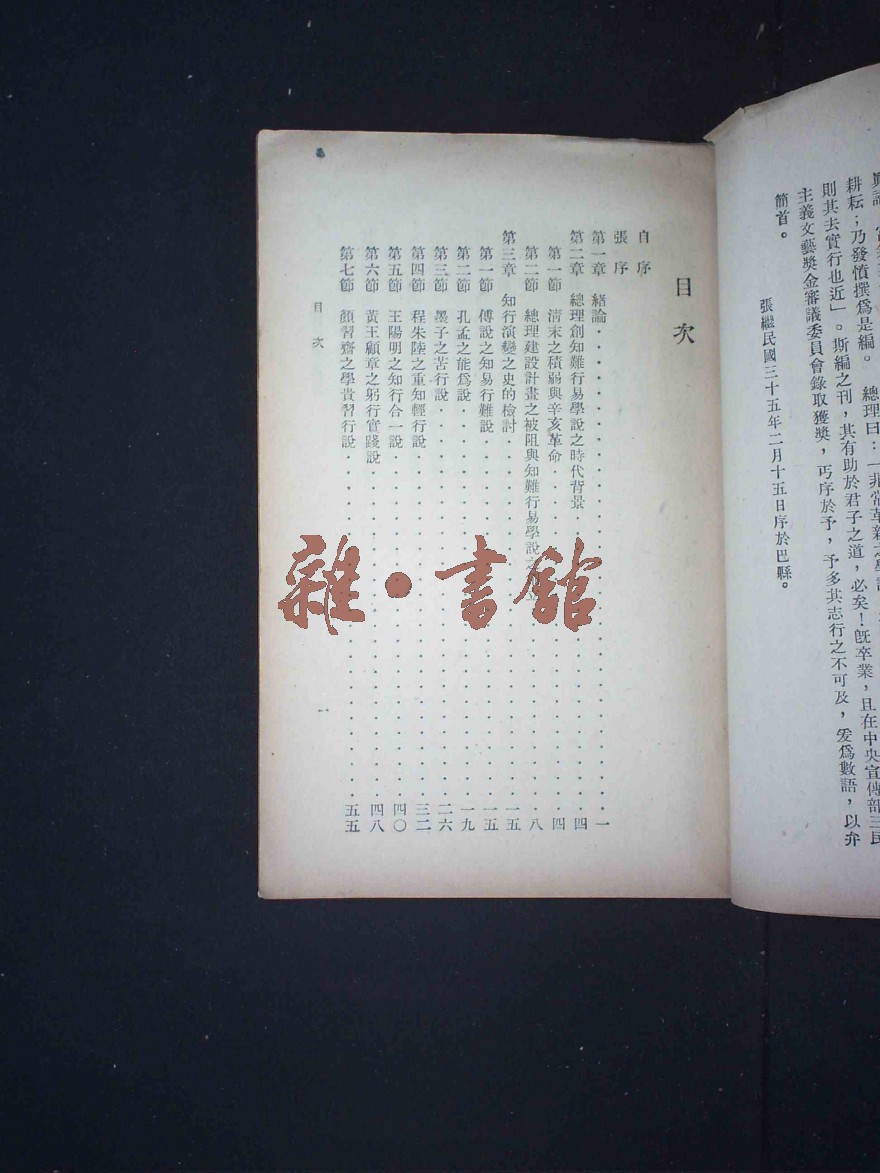 耕耘；乃發憤撰爲是編。 總理曰：「非常革新之學說，
則其去實行也近」。斯編之刊，其有助於君子之道，必矣！旣卒業，且在中央宣傳部三民
主義文藝獎金審議委員會錄取獲獎，丐序於予，予多其志行之不可及，爰爲數語，以弁
簡首。
張繼民國三十五年二月十五日序於巴縣。
目次
自序
張序
第一章 緒論・・・一
第二章 總理創知難行易學說之時代背景・・・四
第一節 清末之積弱與辛亥革命・・・四
第二節 總理建設計畫之被阻與知難行易學說之・・・八
第三章 知行演變之史的檢討・・・一五
第一節 傅說之知易行難說・・・一五
第二節 孔孟之能爲說・・・一九
第三節 墨子之苦行說・・・二六
第四節 程朱陸之重知輕行說・・・三二
第五節 王陽明之知行合一說・・・四〇
第六節 黃王顧章之躬行實踐說・・・四八
第七節 顏習齋之學貴習行說・・・五五
目次
一
雜・書館